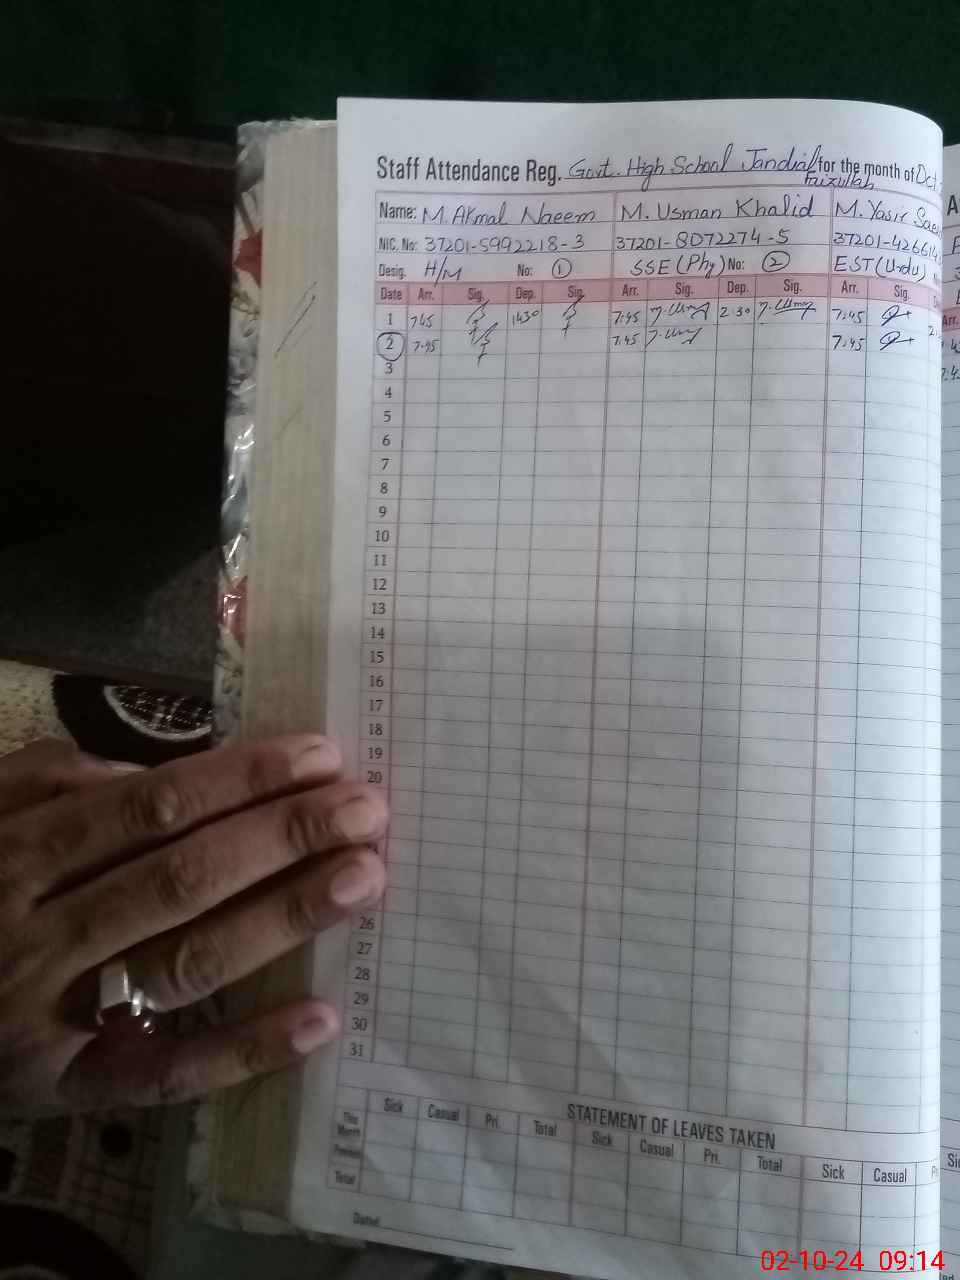 Staff Attendance Reg. Govt. High School Jandial for the month of Oct.
Faizullah
Name: M. Akmal Naeem M. Usman Khalid M. Yasir
NIC. No: 37201-5992218-3 37201-8072274-5 37201-426614
Desig. H/M No: 1 SSE (Phy) No: 2 EST (Urdu)
Date Arr. Sig. Dep. Sig. Arr. Sig. Dep. Sig. Arr. Sig.
1 745 1430 7:45 2:30 7:45
2 7:45 7:45 7:45
3
4
5
6
7
8
9
10
11
12
13
14
15
16
17
18
19
20
26
27
28
29
30
31
STATEMENT OF LEAVES TAKEN
Sick Casual Pri. Total Sick Casual Pri. Total Sick Casual
This Month
Previous
Total
Dated
02-10-24 09:14